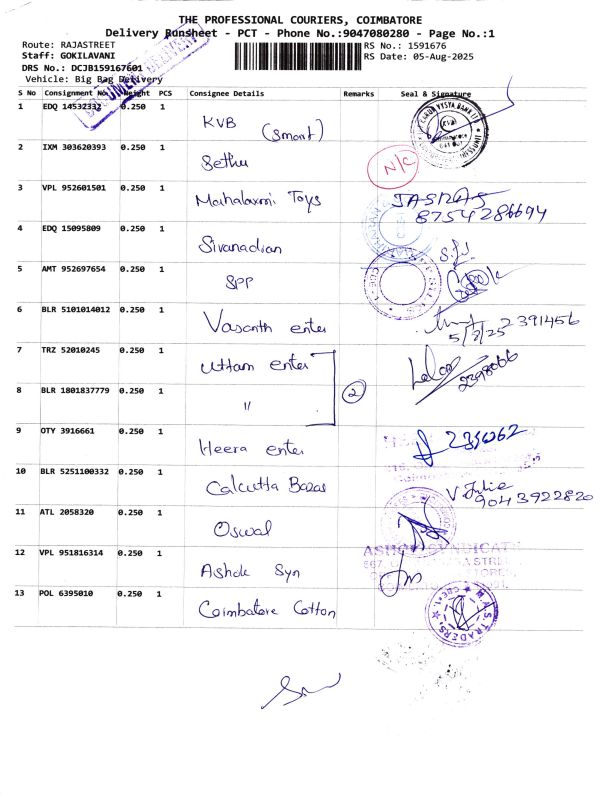 THE PROFESSIONAL COURIERS, COIMBATORE
Delivery Runsheet - PCT - Phone No.:9047080280 - Page No.:1
Route: RAJASTREET
RS No.: 1591676
Staff: GOKILAVANI
RS Date: 05-Aug-2025
DRS No.: DCJB159167601
Vehicle: Big Bag Delivery
S No Consignment No Weight PCS Consignee Details Remarks Seal & Signature
1 EDQ 14532332 0.250 1 KVB (Smart)
2 IXM 303620393 0.250 1 Sethu N/C
3 VPL 952601501 0.250 1 Mahalaxmi Toys
8754286694
4 EDQ 15095809 0.250 1 Sivanadian
5 AMT 952697654 0.250 1 SPP
6 BLR 5101014012 0.250 1 Vasanth enter 2391456
5/8/25
7 TRZ 52010245 0.250 1 Uttam enter 2398066
8 BLR 1801837779 0.250 1 " 2
9 OTY 3916661 0.250 1 Heera enter
10 BLR 5251100332 0.250 1 Calcutta Bazar V Julie
9043922820
11 ATL 2058320 0.250 1 Oswal
12 VPL 951816314 0.250 1 Ashok Syn
13 POL 6395010 0.250 1 Coimbatore Cotton M.A.S. TRADERS